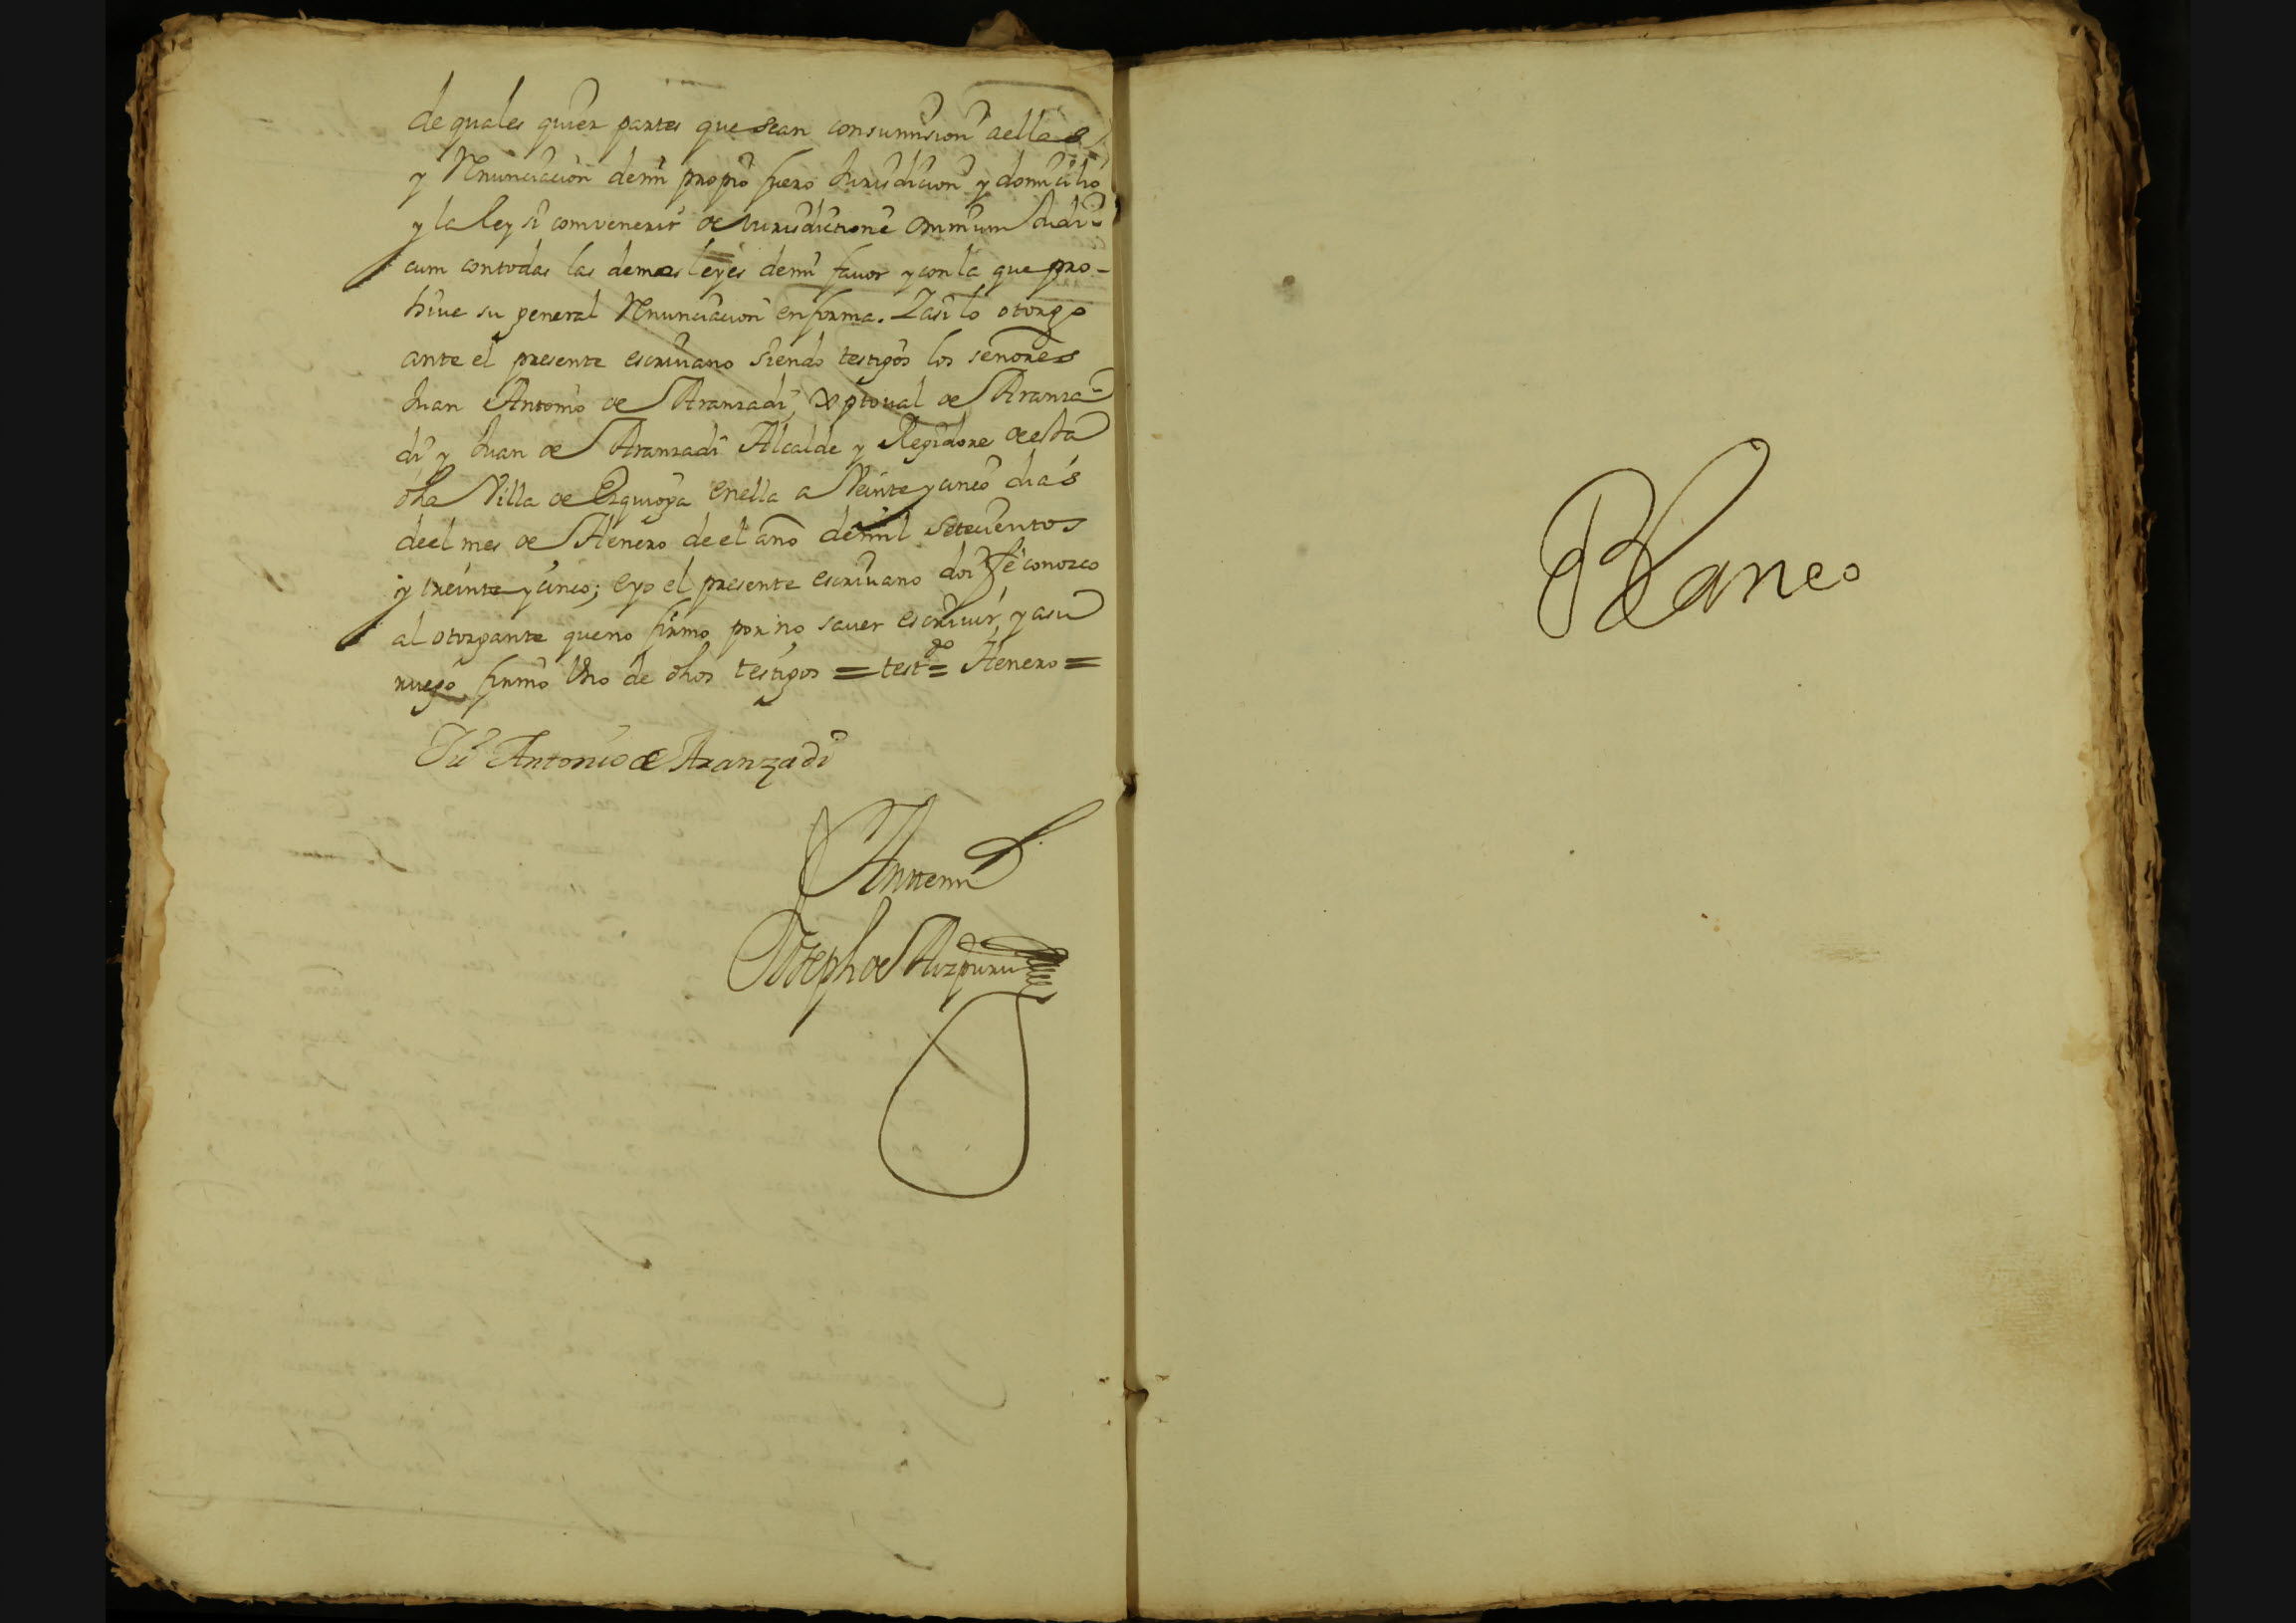 de quales quier partes que sean con sumision aellas
y Renunciacion demi propio fuero Jurisdicion y domicilio
y la ley si combenerit de Jurisdictione omnium Judi-
cum contodas las demas leyes demi favor y con la que pro-
hive su general Renunciacion en forma. Y asi lo otorgo
ante el presente escrivano siendo testigos los señores
Juan Antonio de Aranzadi, Xptoual de Aranza-
di y Juan de Aranzadi Alcalde y Regidores de esta
dha Villa de Ezquioga enella a Veinte y cinco dias
de el mes de Henero de el año demil Setecientos
y treinta y cinco; e yo el presente escrivano doi fé conozco
al otorgante que no firmo por no saver escrivir, y a su
ruego firmó Uno de dhos testigos = testdo = Henero =
Ju Antonio de Aranzadi
Antemi
Joseph de Aizpuru
Blanco